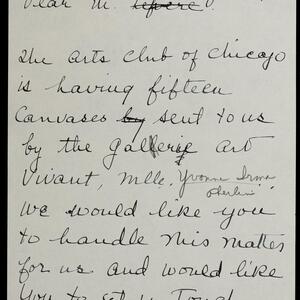 Dear M. Lefevre D.
The Arts Club of Chicago
is having fifteen
Canvases by sent to us
by the Gallerie Art
Vivant, Mlle, Yvonne Irma
We would like you
to handle this matter
for us and would like
you to